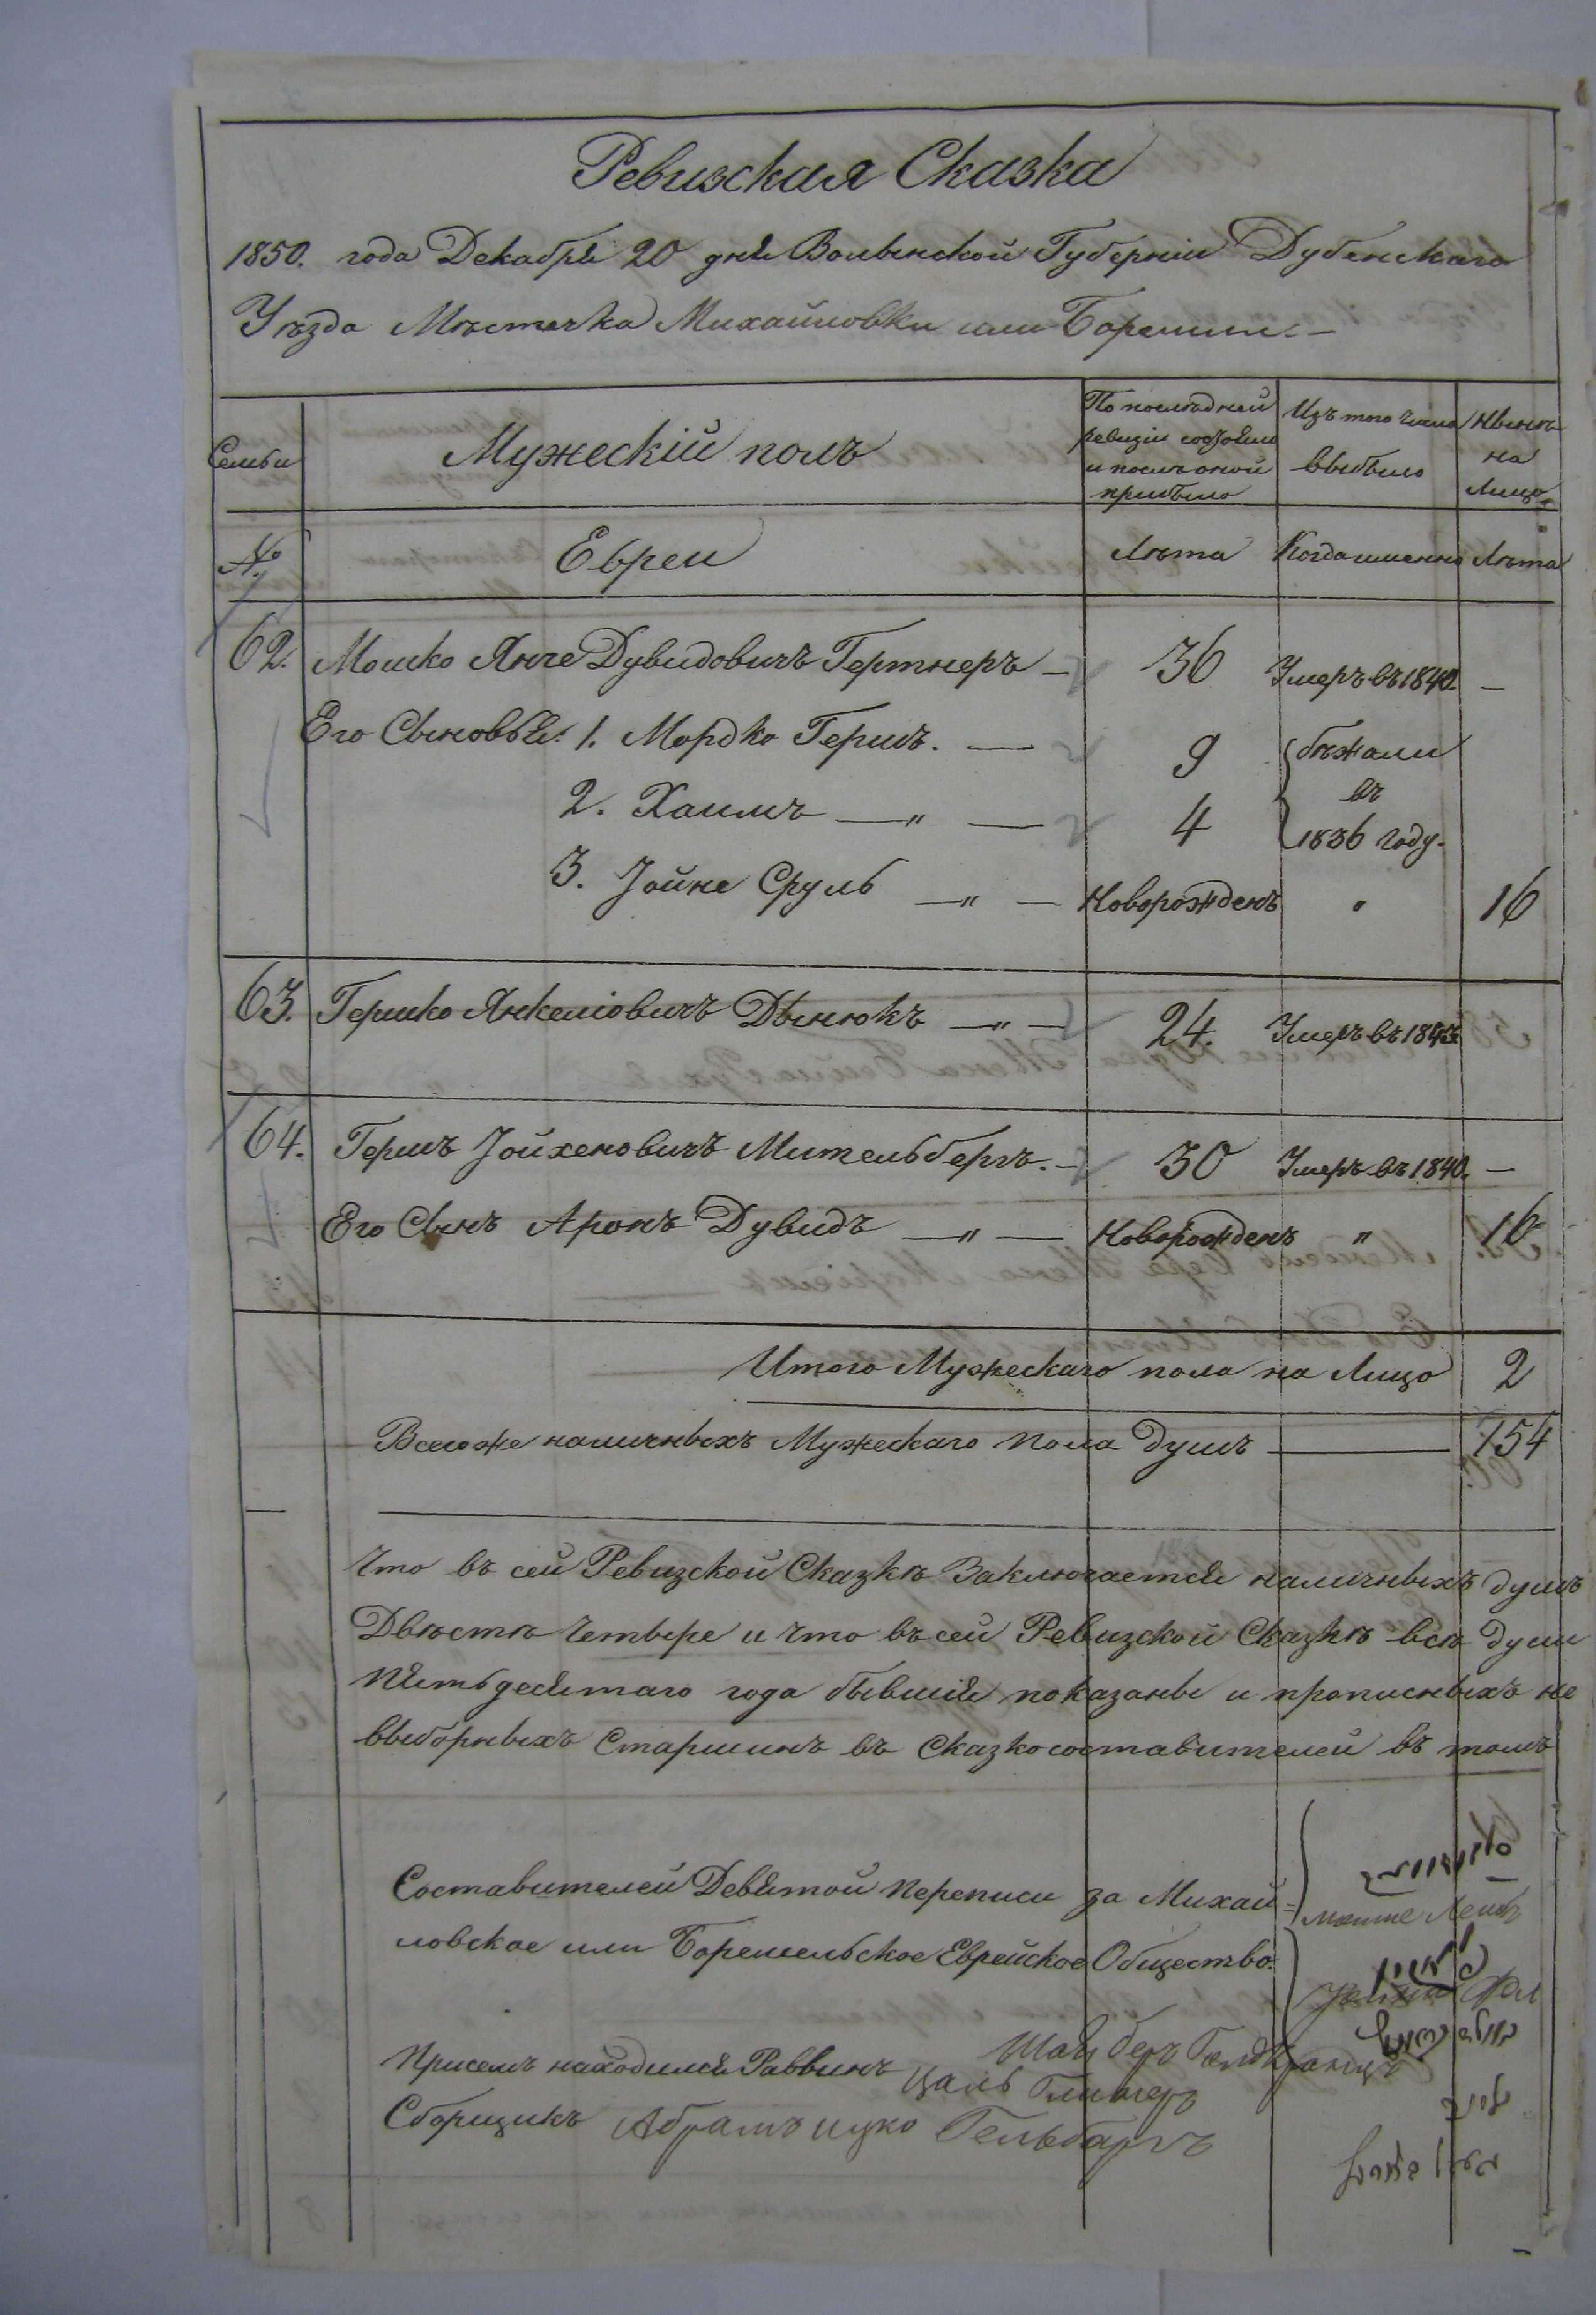 Ревизская Сказка
1850. года Декабря 20 дня Волынской Губерніи Дубенскаго
Уѣзда Мѣстечка Михайловки или Боремли
Семьи
Мужескій полъ
По послѣдней ревизіи состояло и послѣ оной прибыло
Изъ того числа выбыло
Нынѣ на Лицо
№
Евреи
Лѣта
Когда именно
Лѣта
62. Мошко Янче Дувидовичъ Гертнеръ — 36 Умеръ въ 1840. —
Его Сыновья: 1. Мордко Гершъ. — 9 бѣжали
2. Хаимъ — " — 4 въ 1836 году.
3. Іойне Сруль — " — Новорожденъ " 16
63. Гершко Янкеліовичъ Дынюкъ — " — 24. Умеръ въ 1843
64. Гершъ Іойхеновичъ Мительбергъ. — 30 Умеръ въ 1840. —
Его Сынъ Аронъ Дувидъ — " — Новорожденъ " 16
Итого Мужескаго пола на Лицо 2
Всего же наличныхъ Мужескаго Пола Душъ — 154
Что въ сей Ревизской Сказкѣ Заключается наличныхъ душъ
Двѣстѣ Четыре и что въ сей Ревизской Сказкѣ всѣ души
Пятьдесятаго года бывшія показаны и прописныхъ не
выборныхъ Старшинъ въ Сказкосоставителей въ томъ
Составителей Девятой Переписи за Михай=
ловское или Боремельское Еврейское Общество.
При семъ находился Раввинъ
Сборщикъ Абрамъ ицко Гельбаргъ